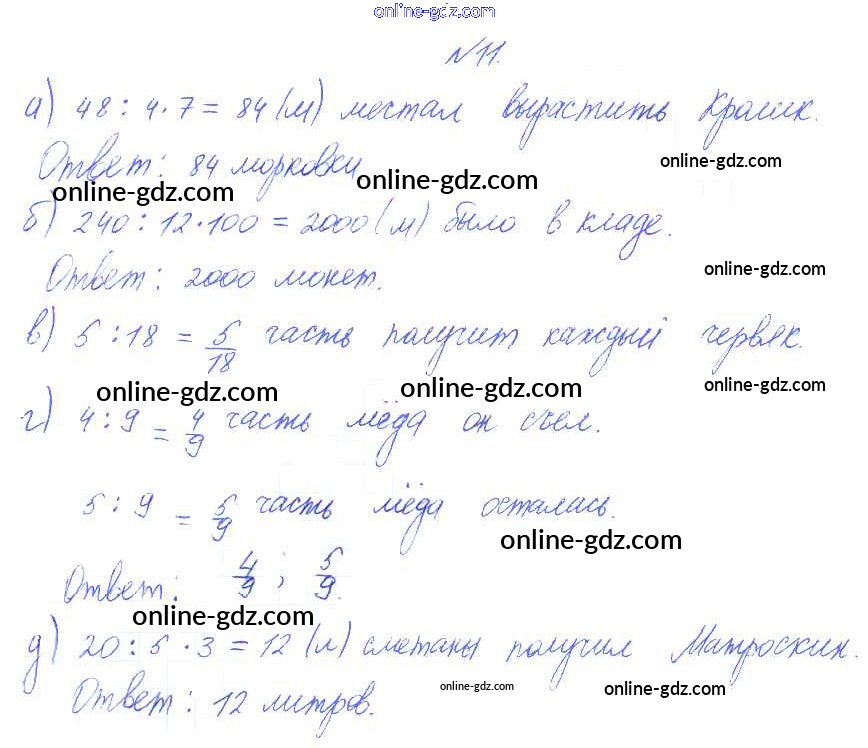 online-gdz.com
№11.
а) 48 : 4 · 7 = 84 (м) мечтал вырастить Кролик.
online-gdz.com
Ответ: 84 морковки
online-gdz.com online-gdz.com
б) 240 : 12 · 100 = 2000 (м) было в кладе.
Ответ: 2000 монет.
online-gdz.com
в) 5 : 18 = 5/18 часть получит каждый червяк.
online-gdz.com online-gdz.com online-gdz.com
г) 4 : 9 = 4/9 часть мёда он съел.
5 : 9 = 5/9 часть мёда осталась.
online-gdz.com
Ответ: 4/9 ; 5/9.
online-gdz.com
д) 20 : 5 · 3 = 12 (л) сметаны получил Матроскин.
online-gdz.com online-gdz.com
Ответ: 12 литров.